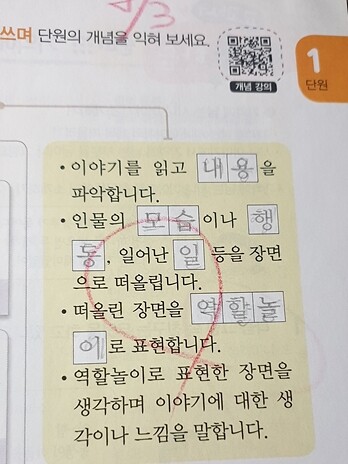 쓰며 단원의 개념을 익혀 보세요.
개념 강의
1
단원
• 이야기를 읽고 내용을
파악합니다.
• 인물의 모습이나 행
동, 일어난 일 등을 장면
으로 떠올립니다.
• 떠올린 장면을 역할놀
이로 표현합니다.
• 역할놀이로 표현한 장면을
생각하며 이야기에 대한 생
각이나 느낌을 말합니다.